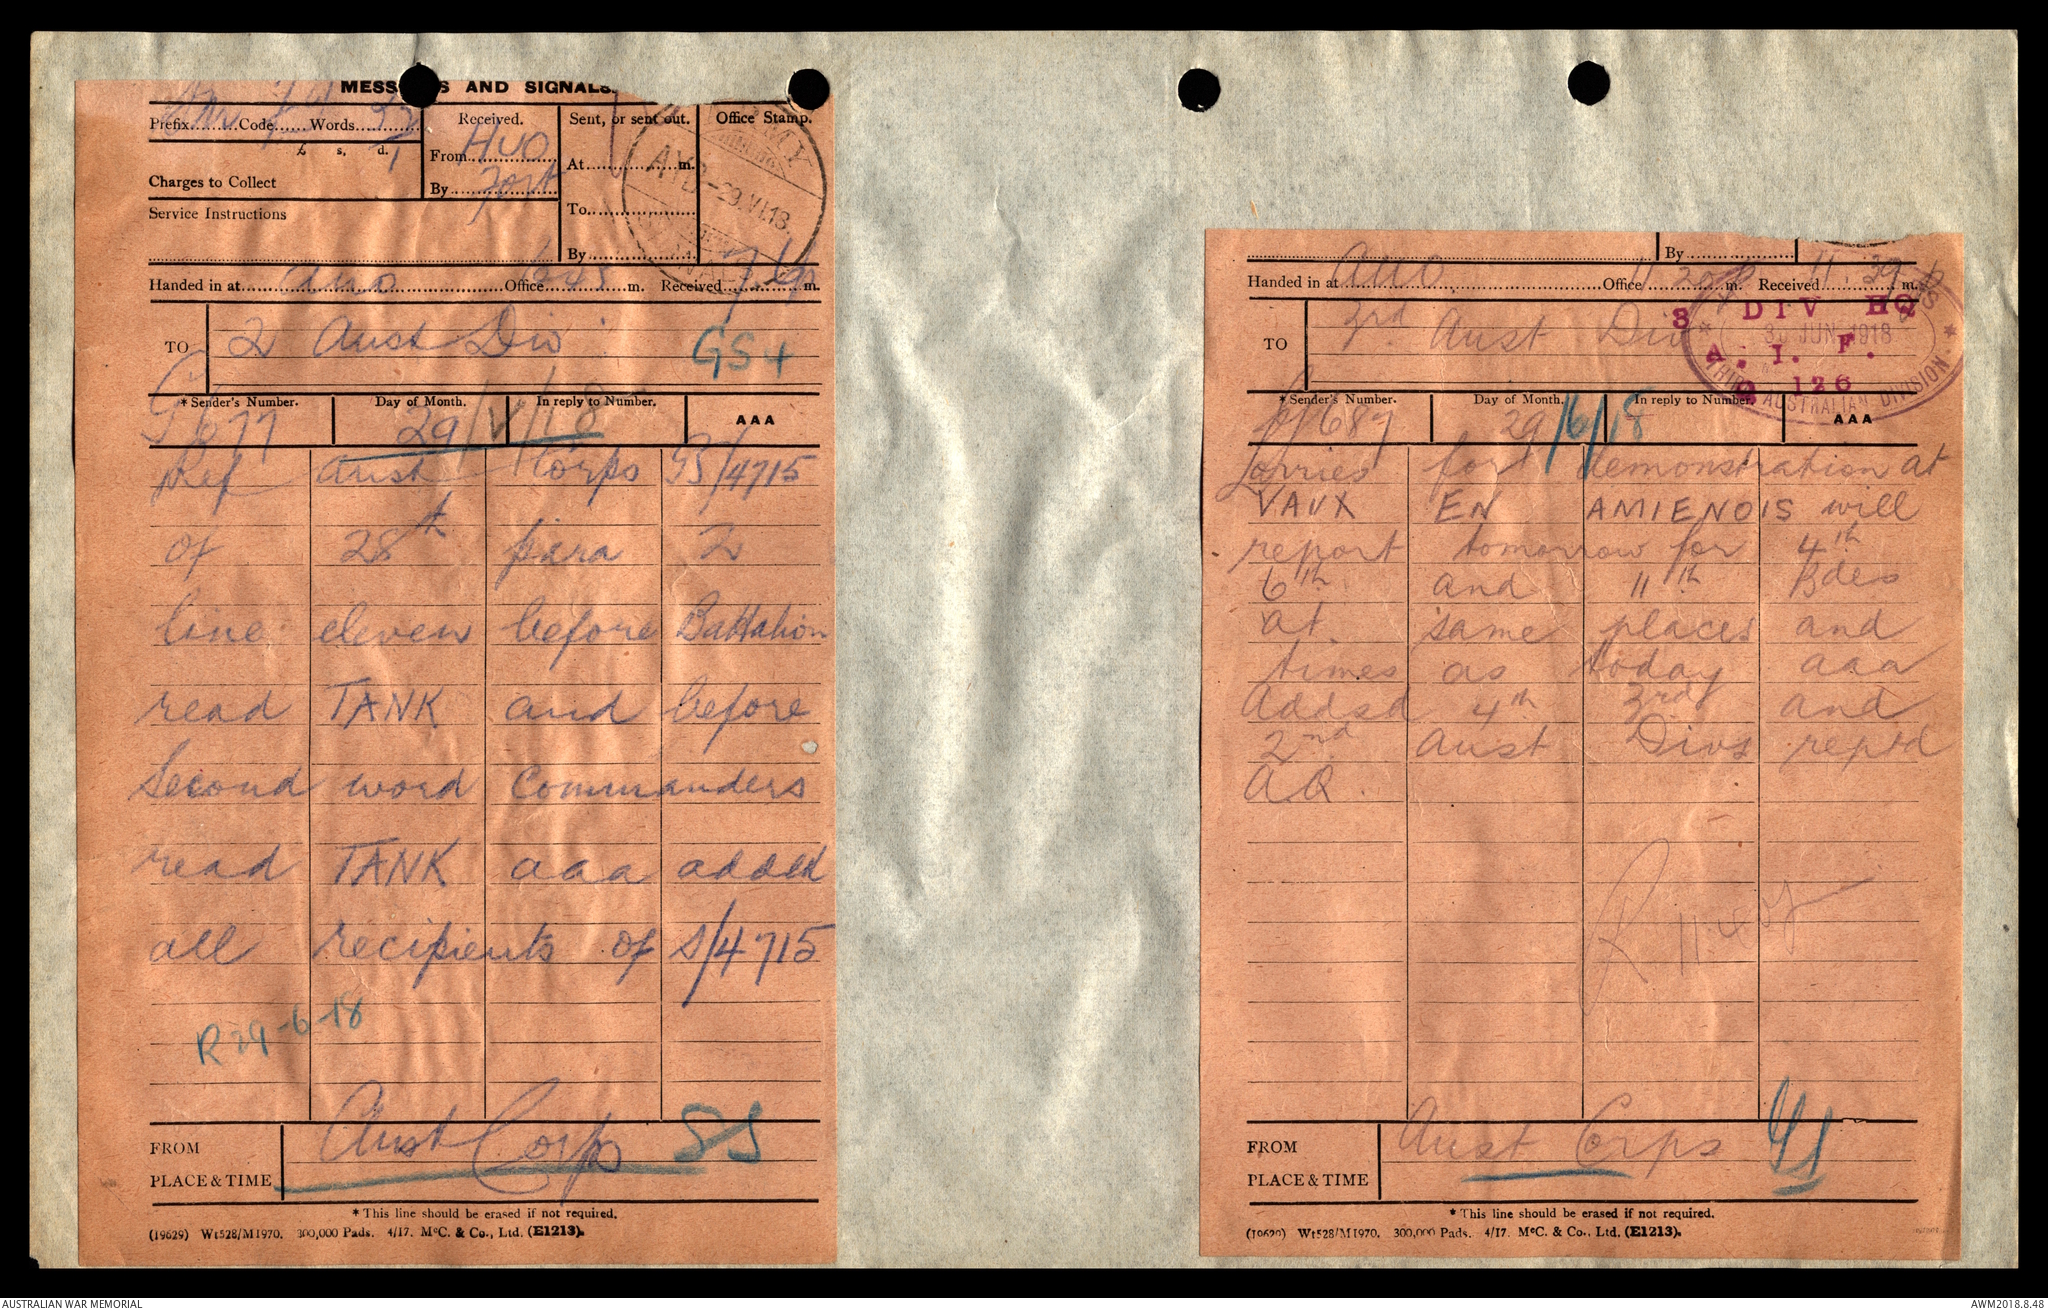 MESS S AND SIGNALS.
Prefix........Code......Words.........
£ s. d.
Charges to Collect
Service Instructions
Received.
From HUO
By
Sent, or sent out.
At............m.
To.
By
Office Stamp.
ARMY
AYB-29.VI.18.
SIGNALS
Handed in at auo Office m. Received m.
TO 2 Aust Div
GS 4
* Sender's Number. Day of Month. In reply to Number. AAA
29/V/18
Ref Aust Corps /4715
of 28th para 2
line eleven before Battalion
read TANK and before
second word Commanders
read TANK aaa added
all recipients of S/4715
R 29-6-18
FROM Aust Corps
PLACE & TIME
* This line should be erased if not required.
(19629) Wt528/M1970. 300,000 Pads. 4/17. McC. & Co., Ltd. (E1213).
By
Handed in at auo Office 11 20 p m. Received 11.39 p m.
TO 3rd Aust Div
3 DIV HQ
30 JUN 1918
A. I. F.
126
THIRD AUSTRALIAN DIVISION
* Sender's Number. Day of Month. In reply to Number. AAA
687 29/6/18
Lorries for demonstration at
VAUX EN AMIENOIS will
report tomorrow for 4th
6th and 11th Bdes
at same places and
times as today aaa
Addsd 4th 3rd and
2nd Aust Divs reptd
A.Q.
R
FROM Aust Corps
PLACE & TIME
* This line should be erased if not required.
(19629) Wt528/M1970. 300,000 Pads. 4/17. McC. & Co., Ltd. (E1213).
AUSTRALIAN WAR MEMORIAL
AWM2018.8.48